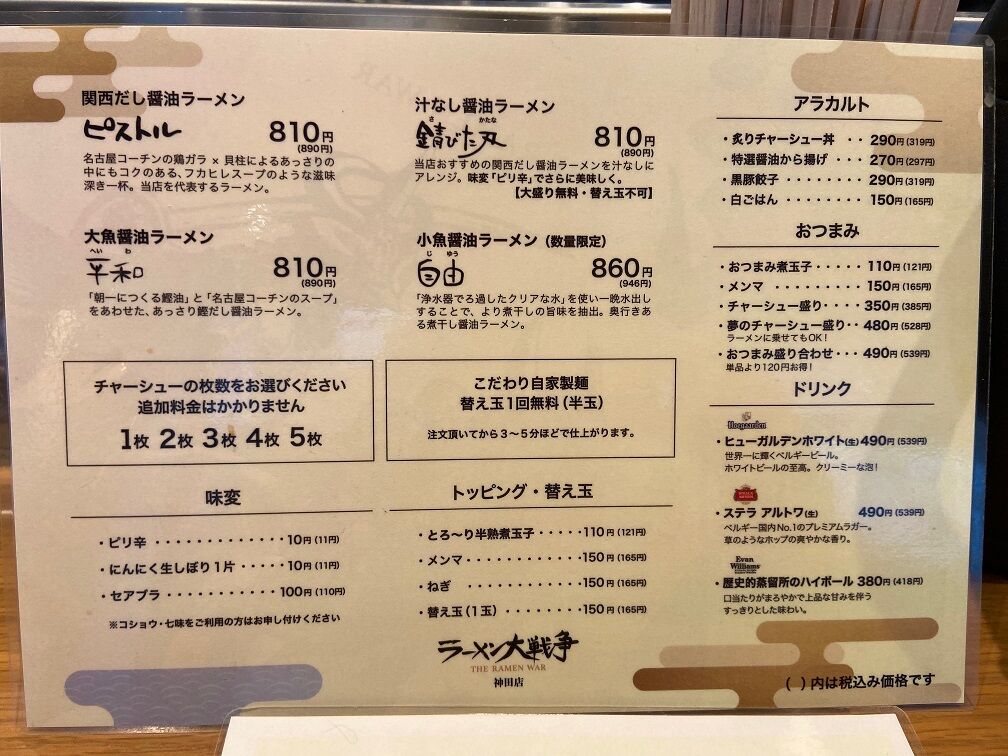 関西だし醤油ラーメン
ピストル 810円
(890円)
名古屋コーチンの鶏ガラ × 貝柱によるあっさりの
中にもコクのある、フカヒレスープのような滋味
深き一杯。当店を代表するラーメン。
汁なし醤油ラーメン
さ かたな
錆びた刃 810円
(890円)
当店おすすめの関西だし醤油ラーメンを汁なしに
アレンジ。味変「ピリ辛」でさらに美味しく。
【大盛り無料・替え玉不可】
大魚醤油ラーメン
へい わ
平和 810円
(890円)
「朝一につくる鰹油」と「名古屋コーチンのスープ」
をあわせた、あっさり鰹だし醤油ラーメン。
小魚醤油ラーメン（数量限定）
じ ゆう
自由 860円
(946円)
「浄水器でろ過したクリアな水」を使い一晩水出し
することで、より煮干しの旨味を抽出。奥行きあ
る煮干し醤油ラーメン。
チャーシューの枚数をお選びください
追加料金はかかりません
1枚 2枚 3枚 4枚 5枚
こだわり自家製麺
替え玉1回無料（半玉）
注文頂いてから３～５分ほどで仕上がります。
味変
・ピリ辛 ············· 10円 (11円)
・にんにく生しぼり１片 ····· 10円 (11円)
・セアブラ ··········· 100円 (110円)
※コショウ・七味をご利用の方はお申し付けください
トッピング・替え玉
・とろ〜り半熟煮玉子 ····· 110円 (121円)
・メンマ ············ 150円 (165円)
・ねぎ ············ 150円 (165円)
・替え玉（１玉） ········ 150円 (165円)
ラーメン大戦争
THE RAMEN WAR
神田店
アラカルト
・炙りチャーシュー丼 ·· 290円 (319円)
・特選醤油から揚げ ··· 270円 (297円)
・黒豚餃子 ········ 290円 (319円)
・白ごはん ········ 150円 (165円)
おつまみ
・おつまみ煮玉子 ···· 110円 (121円)
・メンマ ········· 150円 (165円)
・チャーシュー盛り ···· 350円 (385円)
・夢のチャーシュー盛り ·· 480円 (528円)
ラーメンに乗せてもOK！
・おつまみ盛り合わせ ··· 490円 (539円)
単品より120円お得！
ドリンク
Hoegaarden
・ヒューガルデンホワイト(生) 490円 (539円)
世界一に輝くベルギービール。
ホワイトビールの至高。クリーミーな泡！
・ステラ アルトワ(生) 490円 (539円)
ベルギー国内No.1のプレミアムラガー。
草のようなホップの爽やかな香り。
Evan
Williams
・歴史的蒸留所のハイボール 380円 (418円)
口当たりがまろやかで上品な甘みを伴う
すっきりとした味わい。
( ) 内は税込み価格です